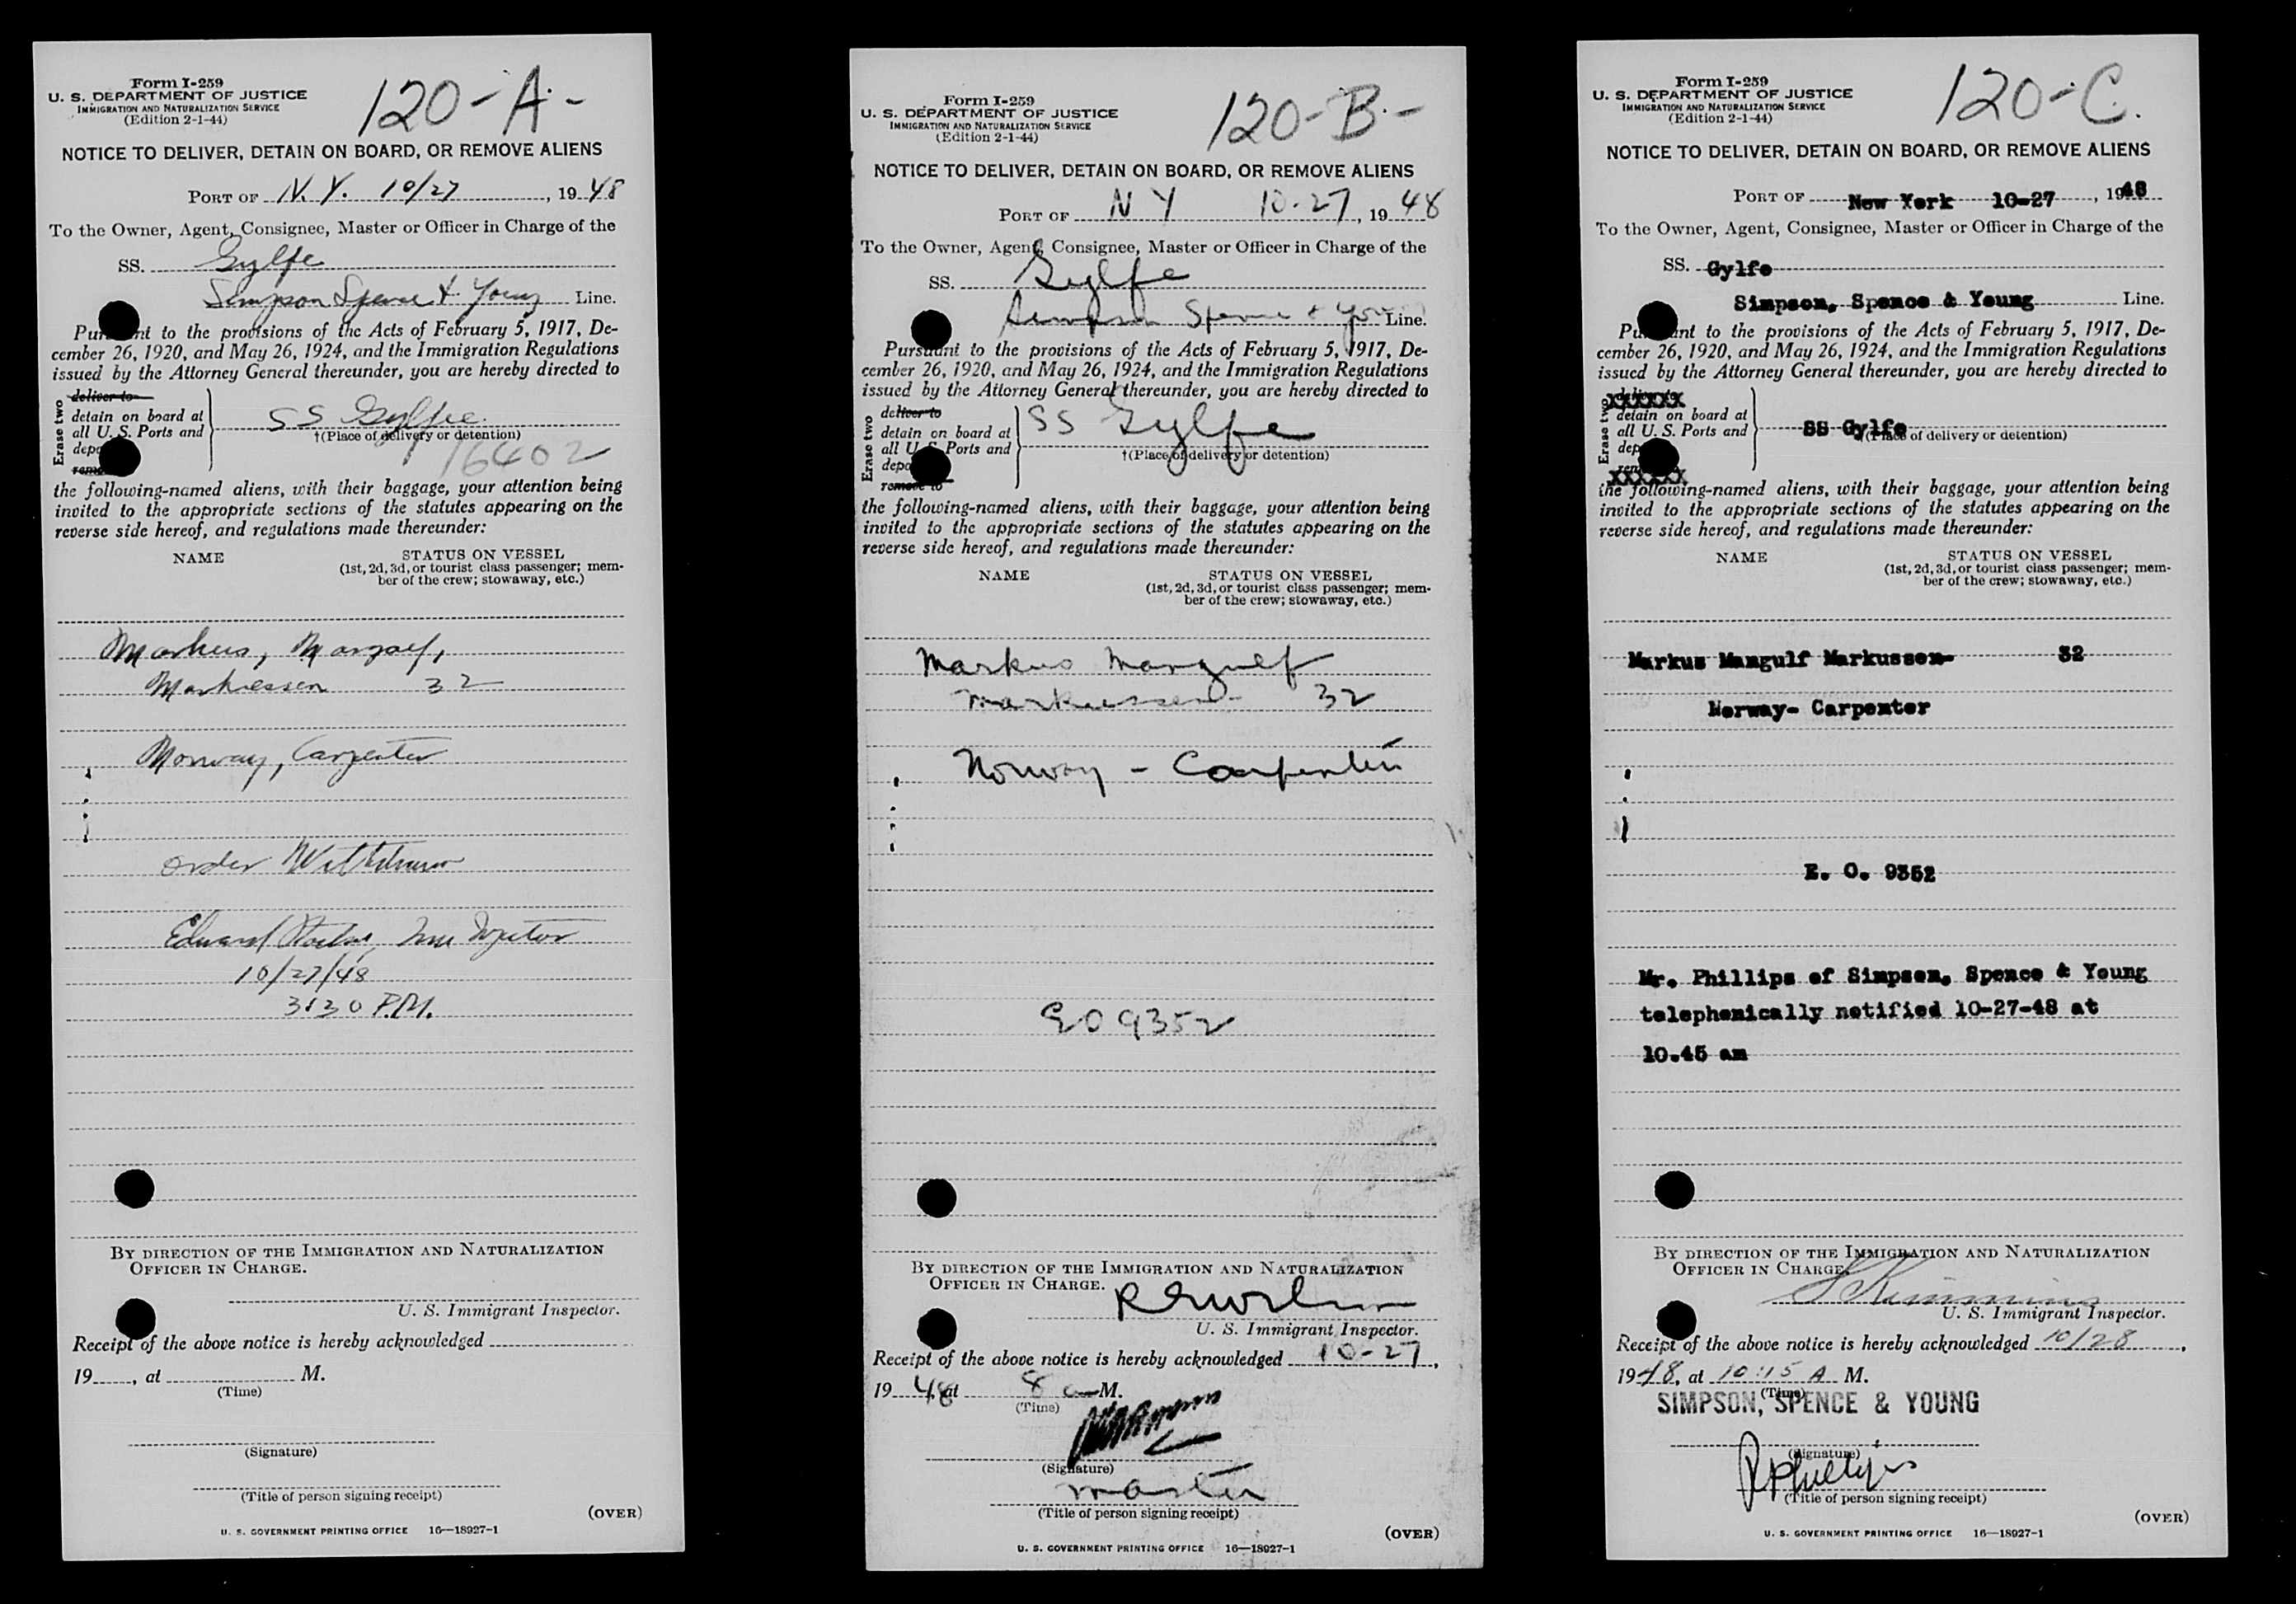 Form I-259
U. S. DEPARTMENT OF JUSTICE
IMMIGRATION AND NATURALIZATION SERVICE
(Edition 2-1-44)
120-A-
NOTICE TO DELIVER, DETAIN ON BOARD, OR REMOVE ALIENS
PORT OF N. Y. 10/27, 1948
To the Owner, Agent, Consignee, Master or Officer in Charge of the
SS. Gylfe
Simpson Spence & Young Line.
Pursuant to the provisions of the Acts of February 5, 1917, De-
cember 26, 1920, and May 26, 1924, and the Immigration Regulations
issued by the Attorney General thereunder, you are hereby directed to
Erase two
deliver to
detain on board at
all U. S. Ports and
SS Gylfe
†(Place of delivery or detention)
16402
the following-named aliens, with their baggage, your attention being
invited to the appropriate sections of the statutes appearing on the
reverse side hereof, and regulations made thereunder:
NAME STATUS ON VESSEL
(1st, 2d, 3d, or tourist class passenger; mem-
ber of the crew; stowaway, etc.)
Markus,
Markussen 32
Norway, Carpenter
order Withdrawn
Edward
10/27/48
3:30 P.M.
BY DIRECTION OF THE IMMIGRATION AND NATURALIZATION
OFFICER IN CHARGE.
U. S. Immigrant Inspector.
Receipt of the above notice is hereby acknowledged
19 , at M.
(Time)
(Signature)
(Title of person signing receipt)
(OVER)
U. S. GOVERNMENT PRINTING OFFICE 16—18927-1
Form I-259
U. S. DEPARTMENT OF JUSTICE
IMMIGRATION AND NATURALIZATION SERVICE
(Edition 2-1-44)
120-B-
NOTICE TO DELIVER, DETAIN ON BOARD, OR REMOVE ALIENS
PORT OF N Y 10-27, 1948
To the Owner, Agent, Consignee, Master or Officer in Charge of the
SS. Gylfe
Simpson Spence & Young Line.
Pursuant to the provisions of the Acts of February 5, 1917, De-
cember 26, 1920, and May 26, 1924, and the Immigration Regulations
issued by the Attorney General thereunder, you are hereby directed to
Erase two
deliver to
detain on board at
all U. S. Ports and
remove to
SS Gylfe
†(Place of delivery or detention)
the following-named aliens, with their baggage, your attention being
invited to the appropriate sections of the statutes appearing on the
reverse side hereof, and regulations made thereunder:
NAME STATUS ON VESSEL
(1st, 2d, 3d, or tourist class passenger; mem-
ber of the crew; stowaway, etc.)
Markus Mangulf
Markussen- 32
Norway - Carpenter
EO 9352
BY DIRECTION OF THE IMMIGRATION AND NATURALIZATION
OFFICER IN CHARGE.
U. S. Immigrant Inspector.
Receipt of the above notice is hereby acknowledged 10-27,
1948, at 8 a M.
(Time)
(Signature)
master
(Title of person signing receipt)
(OVER)
U. S. GOVERNMENT PRINTING OFFICE 16—18927-1
Form I-259
U. S. DEPARTMENT OF JUSTICE
IMMIGRATION AND NATURALIZATION SERVICE
(Edition 2-1-44)
120-C.
NOTICE TO DELIVER, DETAIN ON BOARD, OR REMOVE ALIENS
PORT OF New York 10-27, 1948
To the Owner, Agent, Consignee, Master or Officer in Charge of the
SS. Gylfe
Simpson, Spence & Young Line.
Pursuant to the provisions of the Acts of February 5, 1917, De-
cember 26, 1920, and May 26, 1924, and the Immigration Regulations
issued by the Attorney General thereunder, you are hereby directed to
Erase two
XXXXXX
detain on board at
all U. S. Ports and
XXXXXX
SS Gylfe
†(Place of delivery or detention)
the following-named aliens, with their baggage, your attention being
invited to the appropriate sections of the statutes appearing on the
reverse side hereof, and regulations made thereunder:
NAME STATUS ON VESSEL
(1st, 2d, 3d, or tourist class passenger; mem-
ber of the crew; stowaway, etc.)
Markus Mangulf Markussen- 32
Norway- Carpenter
E. O. 9352
Mr. Phillips of Simpson, Spence & Young
telephonically notified 10-27-48 at
10.45 am
BY DIRECTION OF THE IMMIGRATION AND NATURALIZATION
OFFICER IN CHARGE.
U. S. Immigrant Inspector.
Receipt of the above notice is hereby acknowledged 10/28,
1948, at 10:15 A M.
(Time)
SIMPSON, SPENCE & YOUNG
(Signature)
R Phillips
(Title of person signing receipt)
(OVER)
U. S. GOVERNMENT PRINTING OFFICE 16—18927-1